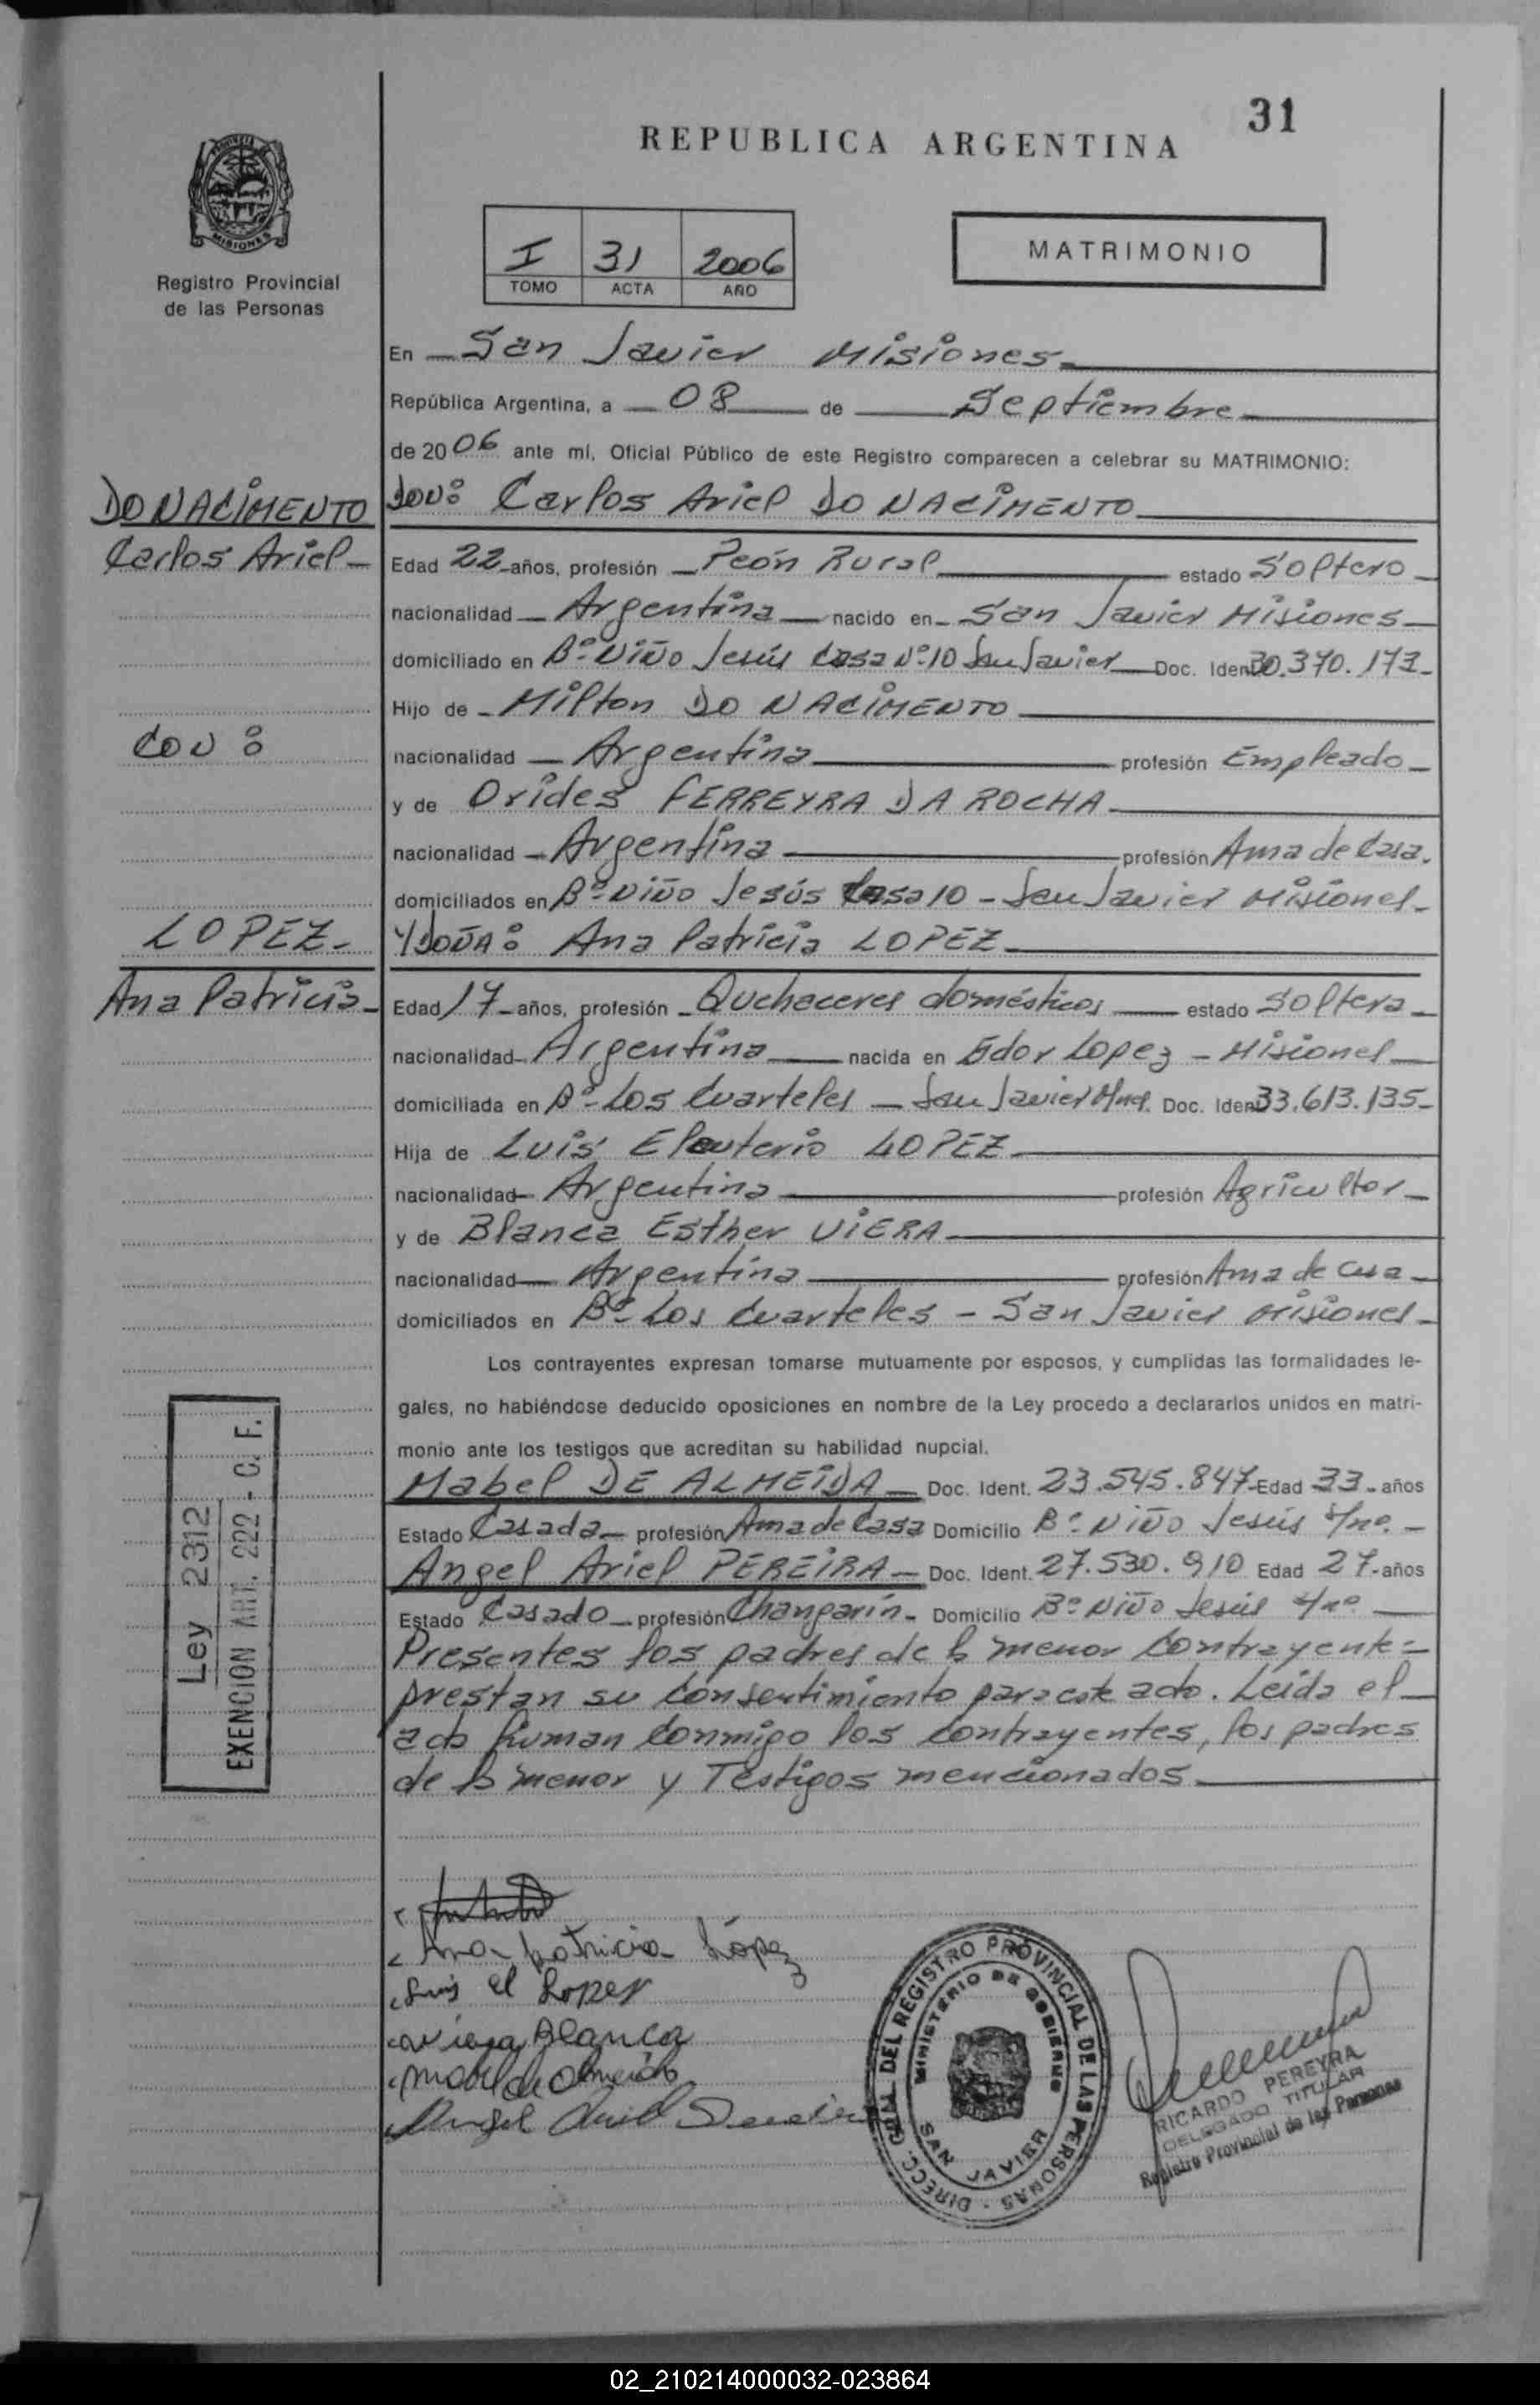 31
REPUBLICA ARGENTINA
MISIONES
Registro Provincial
de las Personas
I 31 2006
TOMO ACTA AÑO
MATRIMONIO
En San Javier Misiones
República Argentina, a 08 de Septiembre
de 2006 ante mí, Oficial Público de este Registro comparecen a celebrar su MATRIMONIO:
DO NACIMENTO
DON: Carlos Ariel DO NACIMENTO
Carlos Ariel
Edad 22 años, profesión Peón Rural estado Soltero
nacionalidad Argentina nacido en San Javier Misiones
domiciliado en Bº Niño Jesús Casa Nº 10 San Javier Doc. Ident. 30.370.173
Hijo de Milton DO NACIMENTO
CON:
nacionalidad Argentina profesión Empleado
y de Orides FERREYRA DA ROCHA
nacionalidad Argentina profesión Ama de Casa.
domiciliados en Bº Niño Jesús Casa 10 - San Javier Misiones
LOPEZ
Y DOÑA: Ana Patricia LOPEZ
Ana Patricia
Edad 17 años, profesión Quehaceres domésticos estado Soltera
nacionalidad Argentina nacida en Gdor Lopez - Misiones
domiciliada en Bº Los Cuarteles - San Javier Mnes. Doc. Iden 33.613.135
Hija de Luis Eleuterio LOPEZ
nacionalidad Argentina profesión Agricultor
y de Blanca Esther VIERA
nacionalidad Argentina profesión Ama de casa
domiciliados en Bº Los Cuarteles - San Javier Misiones
Los contrayentes expresan tomarse mutuamente por esposos, y cumplidas las formalidades le-
gales, no habiéndose deducido oposiciones en nombre de la Ley procedo a declararlos unidos en matri-
monio ante los testigos que acreditan su habilidad nupcial.
Mabel DE ALMEIDA Doc. Ident. 23.545.847 Edad 33 años
Estado Casada profesión Ama de Casa Domicilio Bº Niño Jesús s/nº
Angel Ariel PEREIRA Doc. Ident. 27.530.910 Edad 27 años
Estado Casado profesión Changarín Domicilio Bº Niño Jesús s/nº
Presentes los padres de la menor contrayente
prestan su consentimiento para este acto. Leida el
acta firman conmigo los contrayentes, los padres
de la menor y Testigos mencionados
Ley 2312
EXENCION ART. 222 - C. F.
Ana Patricia López
Luis el Lopez
Blanca
Mabel de Almeida
Angel Ariel Pereira
DIRECC. GRAL. DEL REGISTRO PROVINCIAL DE LAS PERSONAS
MINISTERIO DE GOBIERNO
SAN JAVIER
RICARDO PEREYRA
DELEGADO TITULAR
Registro Provincial de las Personas
02_210214000032-023864